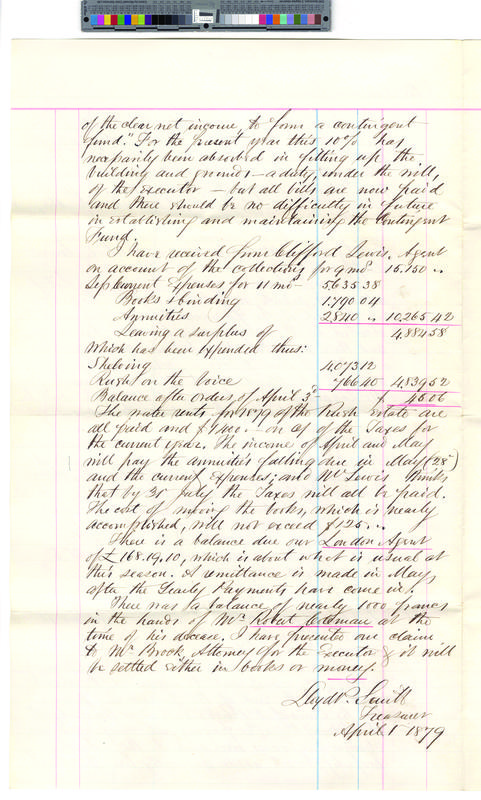 of the clear net income, to form a contingent
fund." For the present year this 10% has
necessarily been absorbed in fitting up the
building and grounds — a duty under the will,
of the executor — but all bills are now paid
and there should be no difficulty in future
in establishing and maintaining the Contingent
Fund.
I have received from Clifford Lewis, Agent
on account of the collections for 9 mos 15.150 ..
Less Current Expenses for 11 mos 5.635 38
Books & binding 1.790 04
Annuities 2840 .. 10,265.42
Leaving a surplus of 4.884 58
Which has been expended thus:
Shelving 4.073 12
Rush on the Voice 766 40 4,839 52
Balance after orders of April 3d $ 45.06
The water rents for 1879 of the Rush Estate are
all paid and on of the Taxes for
the current year. The income of April and May
will pay the annuities falling due in May (28)
and the current expenses; and Mr Lewis thinks
that by 31 July the Taxes will all be paid.
The cost of moving the books, which is nearly
accomplished, will not exceed $125 ..
There is a balance due our London Agent
of £168.19.10, which is about what is usual at
this season. A remittance is made in May,
after the Yearly Payments have come in.
There was a balance of nearly 1000 francs
in the hands of Mr Robert at the
time of his decease. I have presented our claim
to Mr Brook, Attorney for the Executor & it will
be settled either in books or money.
Lloyd P. Smith
Treasurer
April 1 1879